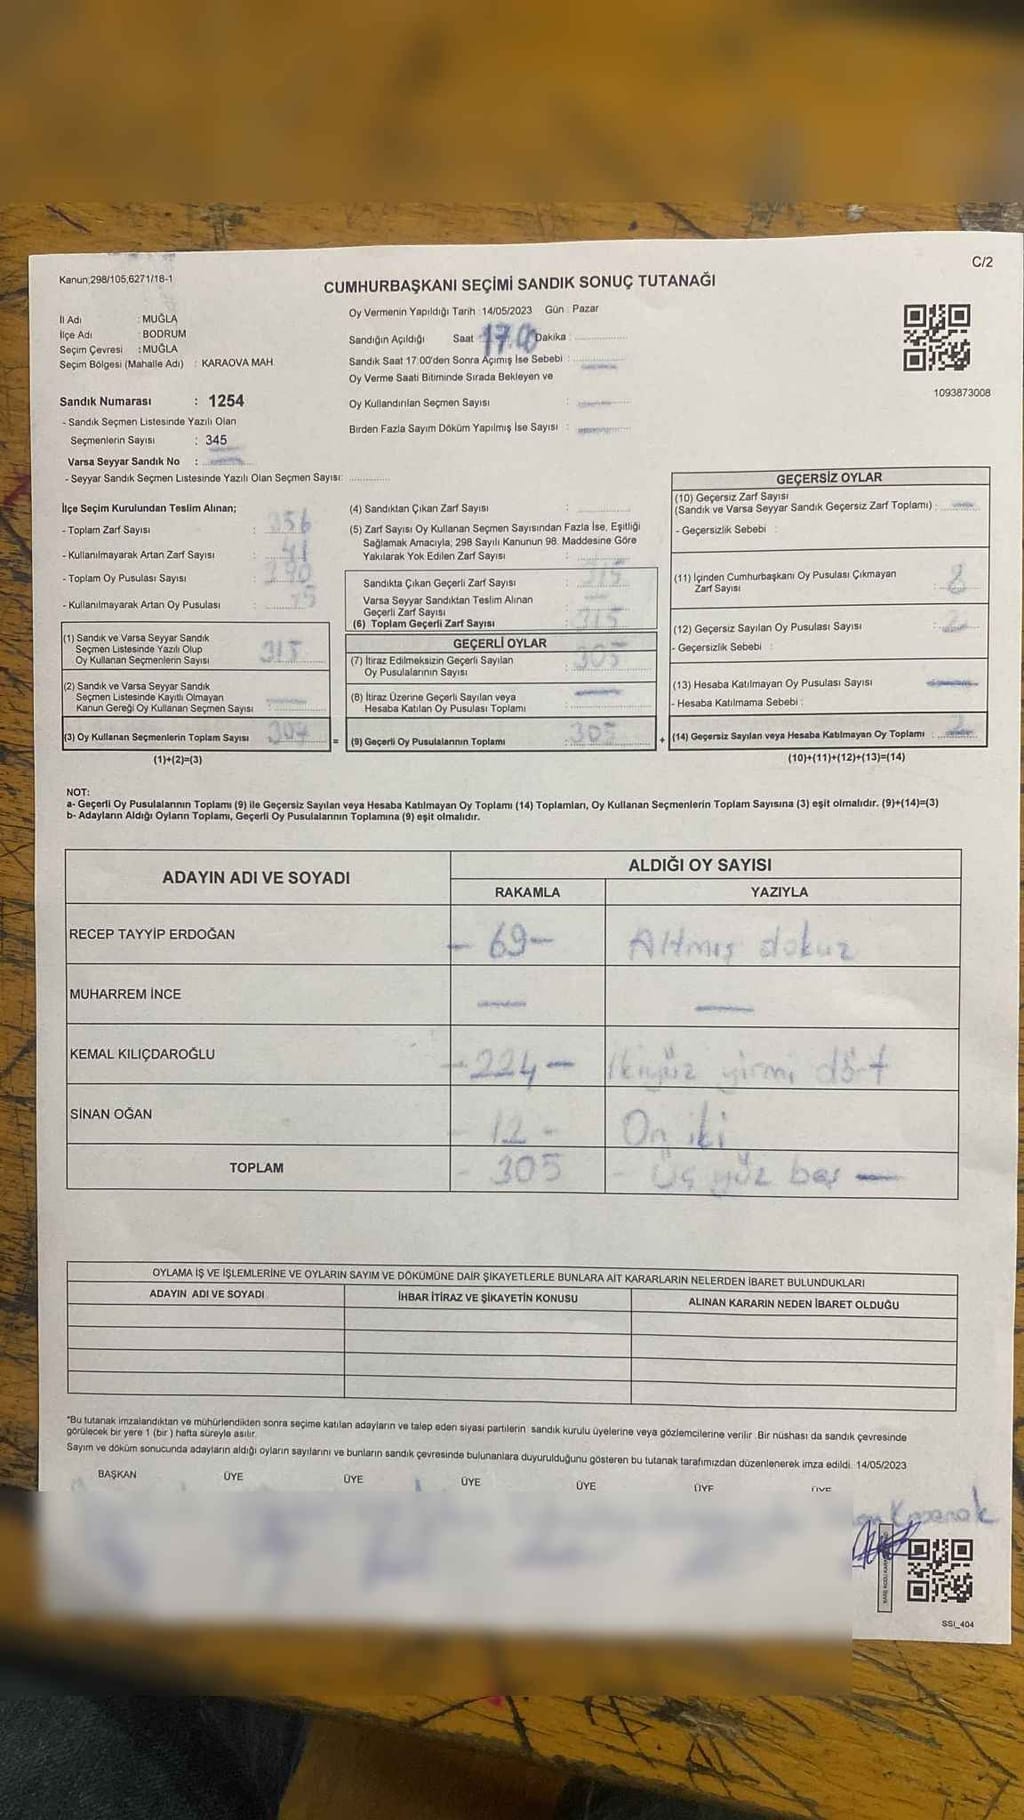 Kanun;298/105,6271/18-1
C/2
CUMHURBAŞKANI SEÇİMİ SANDIK SONUÇ TUTANAĞI
İl Adı : MUĞLA
İlçe Adı : BODRUM
Seçim Çevresi : MUĞLA
Seçim Bölgesi (Mahalle Adı) : KARAOVA MAH.
Sandık Numarası : 1254
- Sandık Seçmen Listesinde Yazılı Olan
Seçmenlerin Sayısı : 345
Varsa Seyyar Sandık No :
- Seyyar Sandık Seçmen Listesinde Yazılı Olan Seçmen Sayısı:
Oy Vermenin Yapıldığı Tarih : 14/05/2023 Gün : Pazar
Sandığın Açıldığı Saat 17.00 Dakika :
Sandık Saat 17:00'den Sonra Açımış İse Sebebi :
Oy Verme Saati Bitiminde Sırada Bekleyen ve
Oy Kullandırılan Seçmen Sayısı :
Birden Fazla Sayım Döküm Yapılmış İse Sayısı :
1093873008
İlçe Seçim Kurulundan Teslim Alınan;
- Toplam Zarf Sayısı : 356
- Kullanılmayarak Artan Zarf Sayısı : 41
- Toplam Oy Pusulası Sayısı :
- Kullanılmayarak Artan Oy Pusulası :
(1) Sandık ve Varsa Seyyar Sandık
Seçmen Listesinde Yazılı Olup
Oy Kullanan Seçmenlerin Sayısı : 315
(2) Sandık ve Varsa Seyyar Sandık
Seçmen Listesinde Kayıtlı Olmayan
Kanun Gereği Oy Kullanan Seçmen Sayısı :
(3) Oy Kullanan Seçmenlerin Toplam Sayısı : 307
(1)+(2)=(3)
(4) Sandıktan Çıkan Zarf Sayısı :
(5) Zarf Sayısı Oy Kullanan Seçmen Sayısından Fazla İse, Eşitliği
Sağlamak Amacıyla; 298 Sayılı Kanunun 98. Maddesine Göre
Yakılarak Yok Edilen Zarf Sayısı :
Sandıkta Çıkan Geçerli Zarf Sayısı : 315
Varsa Seyyar Sandıktan Teslim Alınan
Geçerli Zarf Sayısı :
(6) Toplam Geçerli Zarf Sayısı : 315
GEÇERLİ OYLAR
(7) İtiraz Edilmeksizin Geçerli Sayılan : 305
Oy Pusulalarının Sayısı
(8) İtiraz Üzerine Geçerli Sayılan veya
Hesaba Katılan Oy Pusulası Toplamı :
= (9) Geçerli Oy Pusulalarının Toplamı : 305
GEÇERSİZ OYLAR
(10) Geçersiz Zarf Sayısı
(Sandık ve Varsa Seyyar Sandık Geçersiz Zarf Toplamı) :
- Geçersizlik Sebebi :
(11) İçinden Cumhurbaşkanı Oy Pusulası Çıkmayan : 8
Zarf Sayısı
(12) Geçersiz Sayılan Oy Pusulası Sayısı : 2
- Geçersizlik Sebebi :
(13) Hesaba Katılmayan Oy Pusulası Sayısı :
- Hesaba Katılmama Sebebi :
+ (14) Geçersiz Sayılan veya Hesaba Katılmayan Oy Toplamı : 2
(10)+(11)+(12)+(13)=(14)
NOT:
a- Geçerli Oy Pusulalarının Toplamı (9) ile Geçersiz Sayılan veya Hesaba Katılmayan Oy Toplamı (14) Toplamları, Oy Kullanan Seçmenlerin Toplam Sayısına (3) eşit olmalıdır. (9)+(14)=(3)
b- Adayların Aldığı Oyların Toplamı, Geçerli Oy Pusulalarının Toplamına (9) eşit olmalıdır.
ADAYIN ADI VE SOYADI ALDIĞI OY SAYISI
RAKAMLA YAZIYLA
RECEP TAYYİP ERDOĞAN - 69 - Altmış dokuz
MUHARREM İNCE — —
KEMAL KILIÇDAROĞLU - 224 - İkiyüz yirmi dört
SİNAN OĞAN - 12 - On iki
TOPLAM - 305 - Üç yüz beş —
OYLAMA İŞ VE İŞLEMLERİNE VE OYLARIN SAYIM VE DÖKÜMÜNE DAİR ŞİKAYETLERLE BUNLARA AİT KARARLARIN NELERDEN İBARET BULUNDUKLARI
ADAYIN ADI VE SOYADI İHBAR İTİRAZ VE ŞİKAYETİN KONUSU ALINAN KARARIN NEDEN İBARET OLDUĞU
"Bu tutanak imzalandıktan ve mühürlendikten sonra seçime katılan adayların ve talep eden siyasi partilerin sandık kurulu üyelerine veya gözlemcilerine verilir. Bir nüshası da sandık çevresinde
görülecek bir yere 1 (bir ) hafta süreyle asılır.
Sayım ve döküm sonucunda adayların aldığı oyların sayılarını ve bunların sandık çevresinde bulunanlara duyurulduğunu gösteren bu tutanak tarafımızdan düzenlenerek imza edildi. 14/05/2023
BAŞKAN ÜYE ÜYE ÜYE ÜYE ÜYE ÜYE
SSI_404